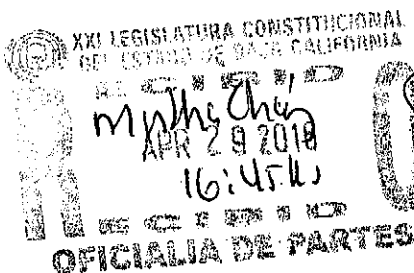 XXI LEGISLATURA CONSTITUCIONAL
DEL ESTADO DE BAJA CALIFORNIA
RECIBIDO
APR 29 2016
16:45 hs
RECIBIDO
OFICIALIA DE PARTES